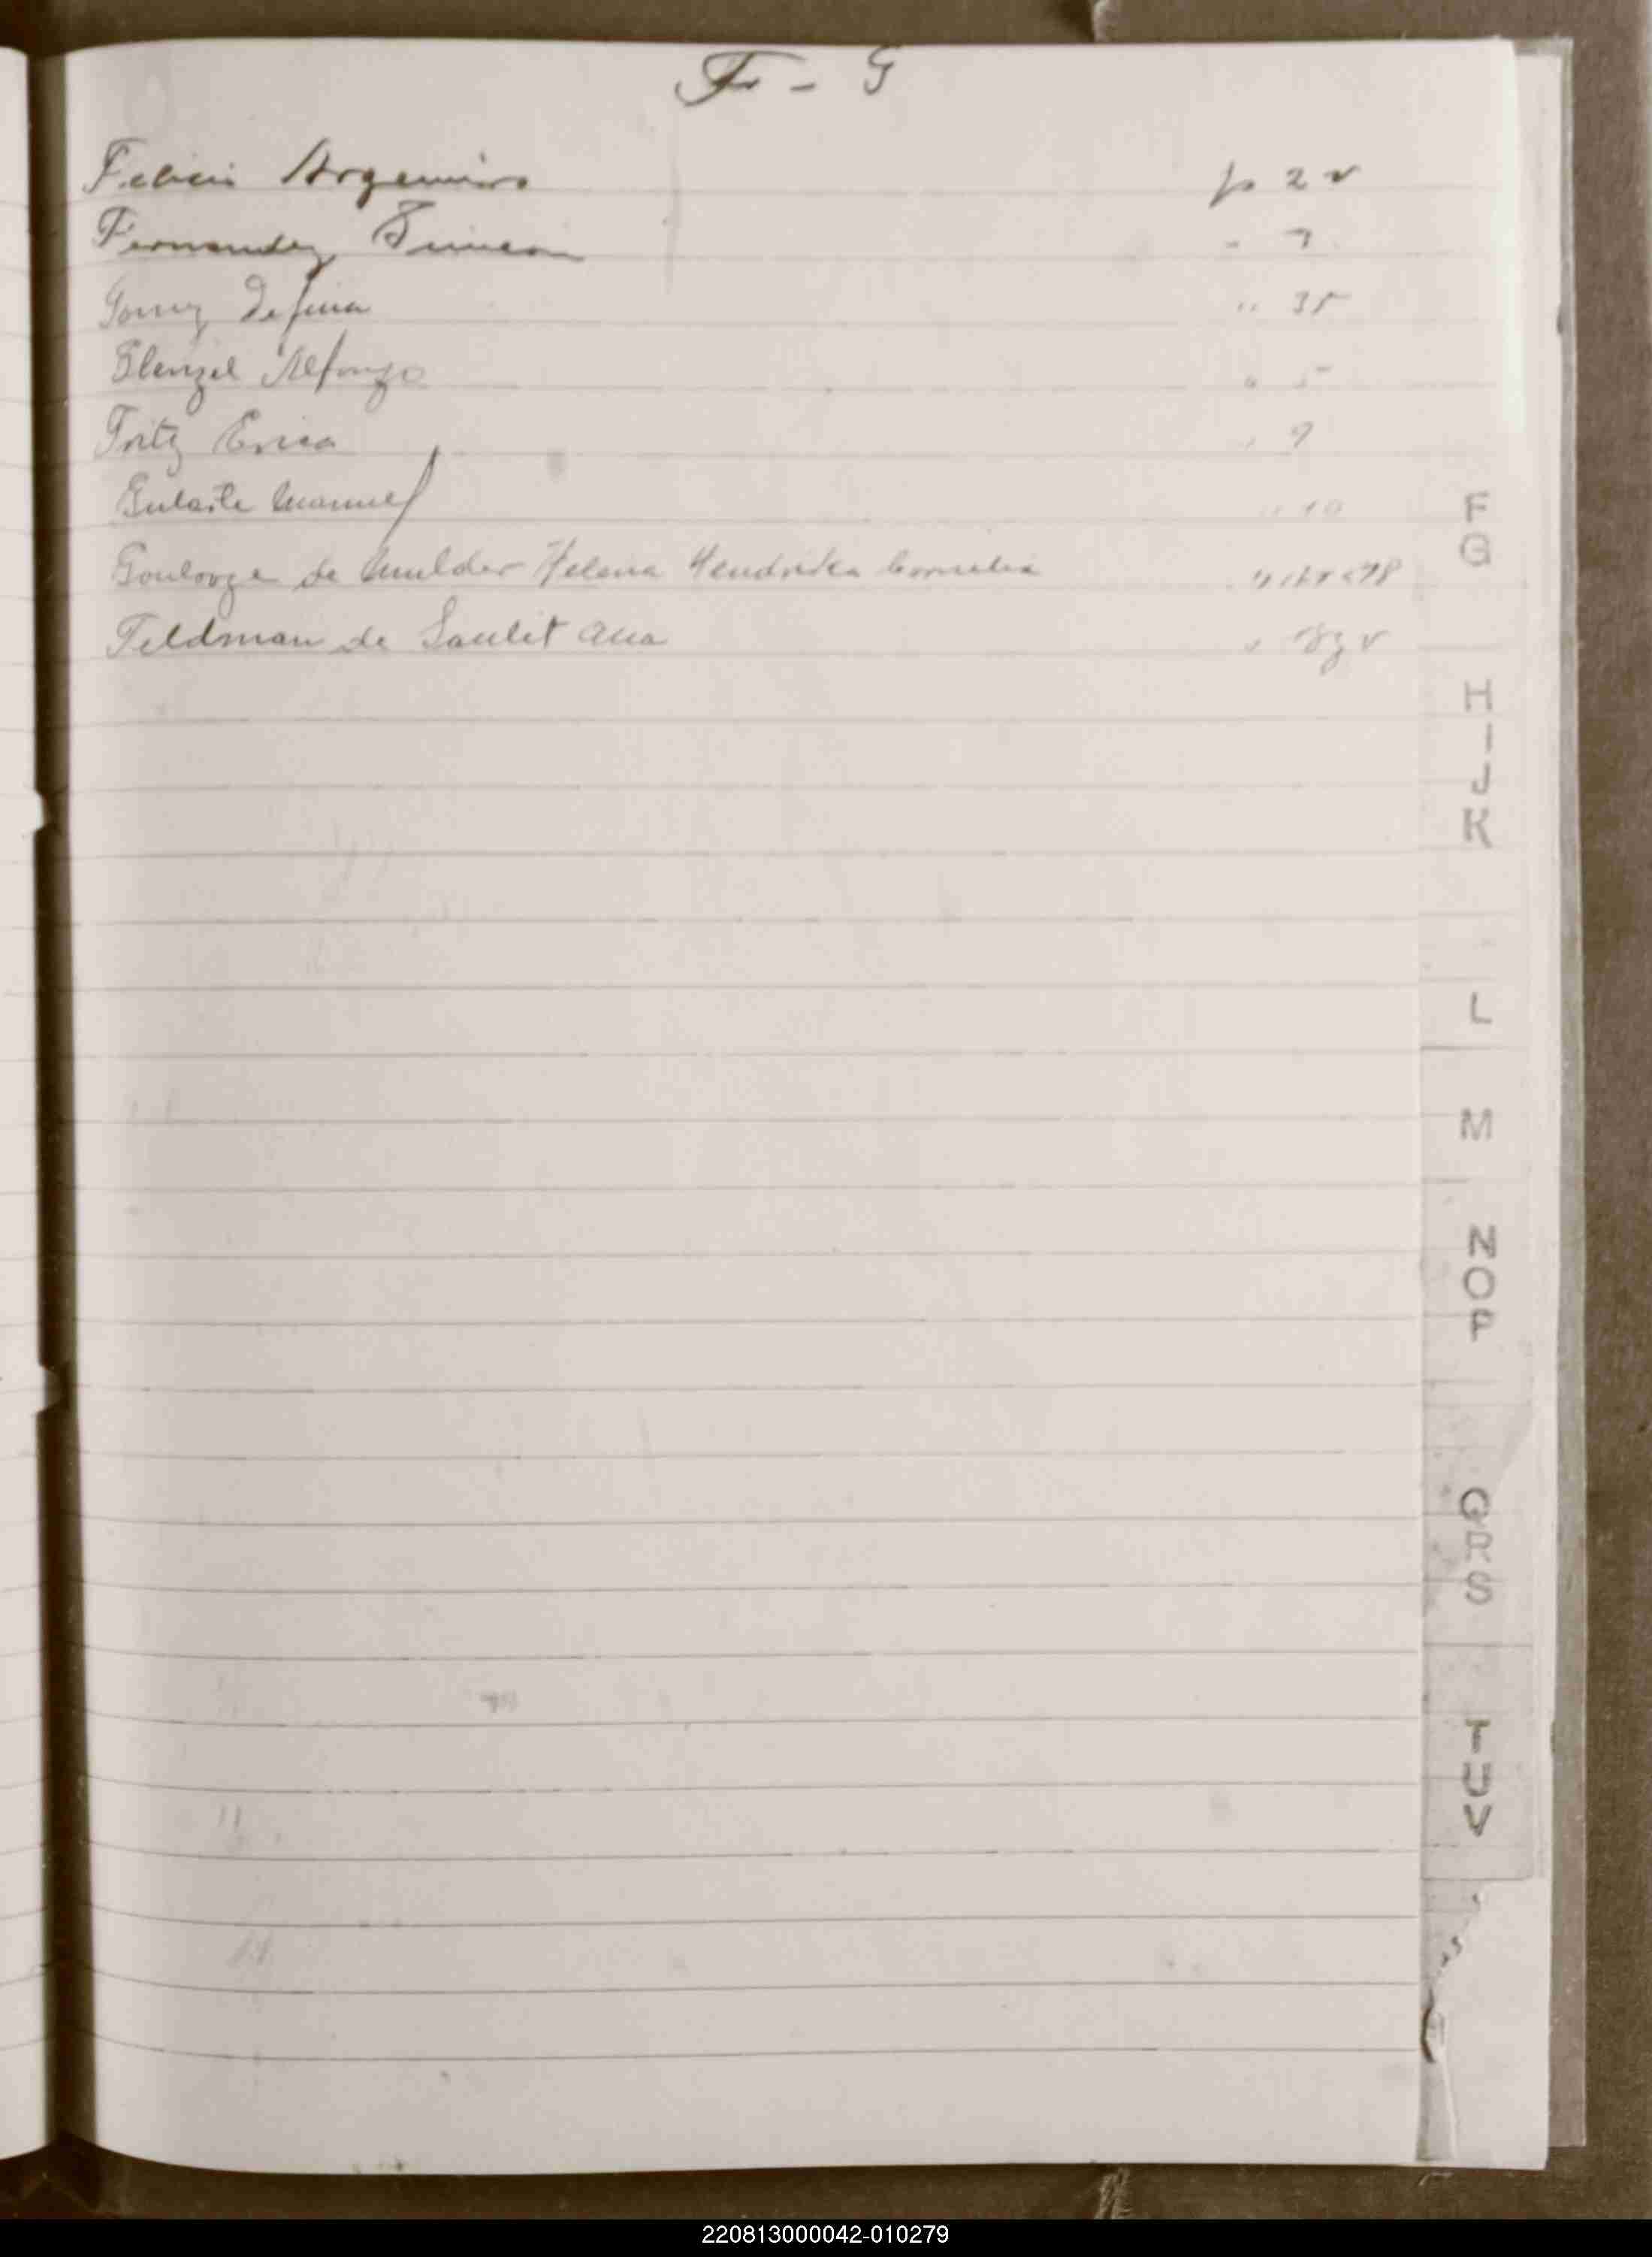 F - G
Argemiro p 2 v
Fernandez Simeon - 7
Gomez Defina " 35
Glenzel Alfonzo " 5
Fritz Erica " 9
Gularte Manuel " 10
Goulooze de Mulder Helena Hendrika Cornelia
Feldman de Saulit Ana
F
G
H
I
J
K
L
M
N
O
P
Q
R
S
T
U
V
220813000042-010279